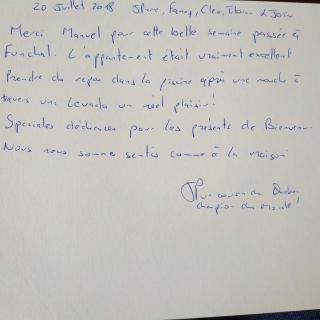 20 Juillet 2018 JPierre, Fanny, Cleo, Titouan & Joris
Merci Manuel pour cette belle semaine passée à
Funchal. L'appartement était vraiment excellent
Prendre du repos dans la piscine après une marche à
travers une Levada un réel plaisir!
Spéciales dédicaces pour les présents de Bienvenue.
Nous nous sommes sentis comme à la maison
champion du monde!